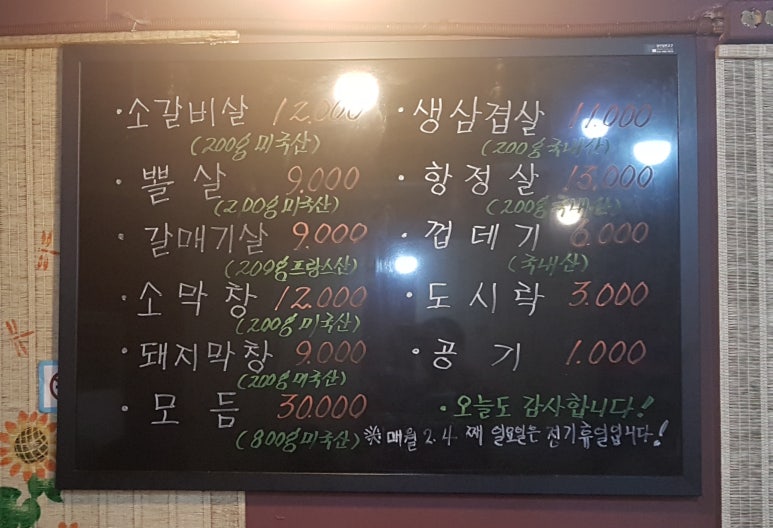 · 소갈비살 12.000
(200g 미국산)
· 뽈살 9.000
(200g 미국산)
· 갈매기살 9.000
(200g 프랑스산)
· 소막창 12.000
(200g 미국산)
· 돼지막창 9.000
(200g 미국산)
· 모듬 30.000
(800g 미국산)
· 생삼겹살 11.000
(200g 국내산)
· 항정살 13.000
(200g 국내산)
· 껍데기 6.000
(국내산)
· 도시락 3.000
· 공기 1.000
· 오늘도 감사합니다!
※ 매월 2.4. 째 일요일은 정기휴일입니다!